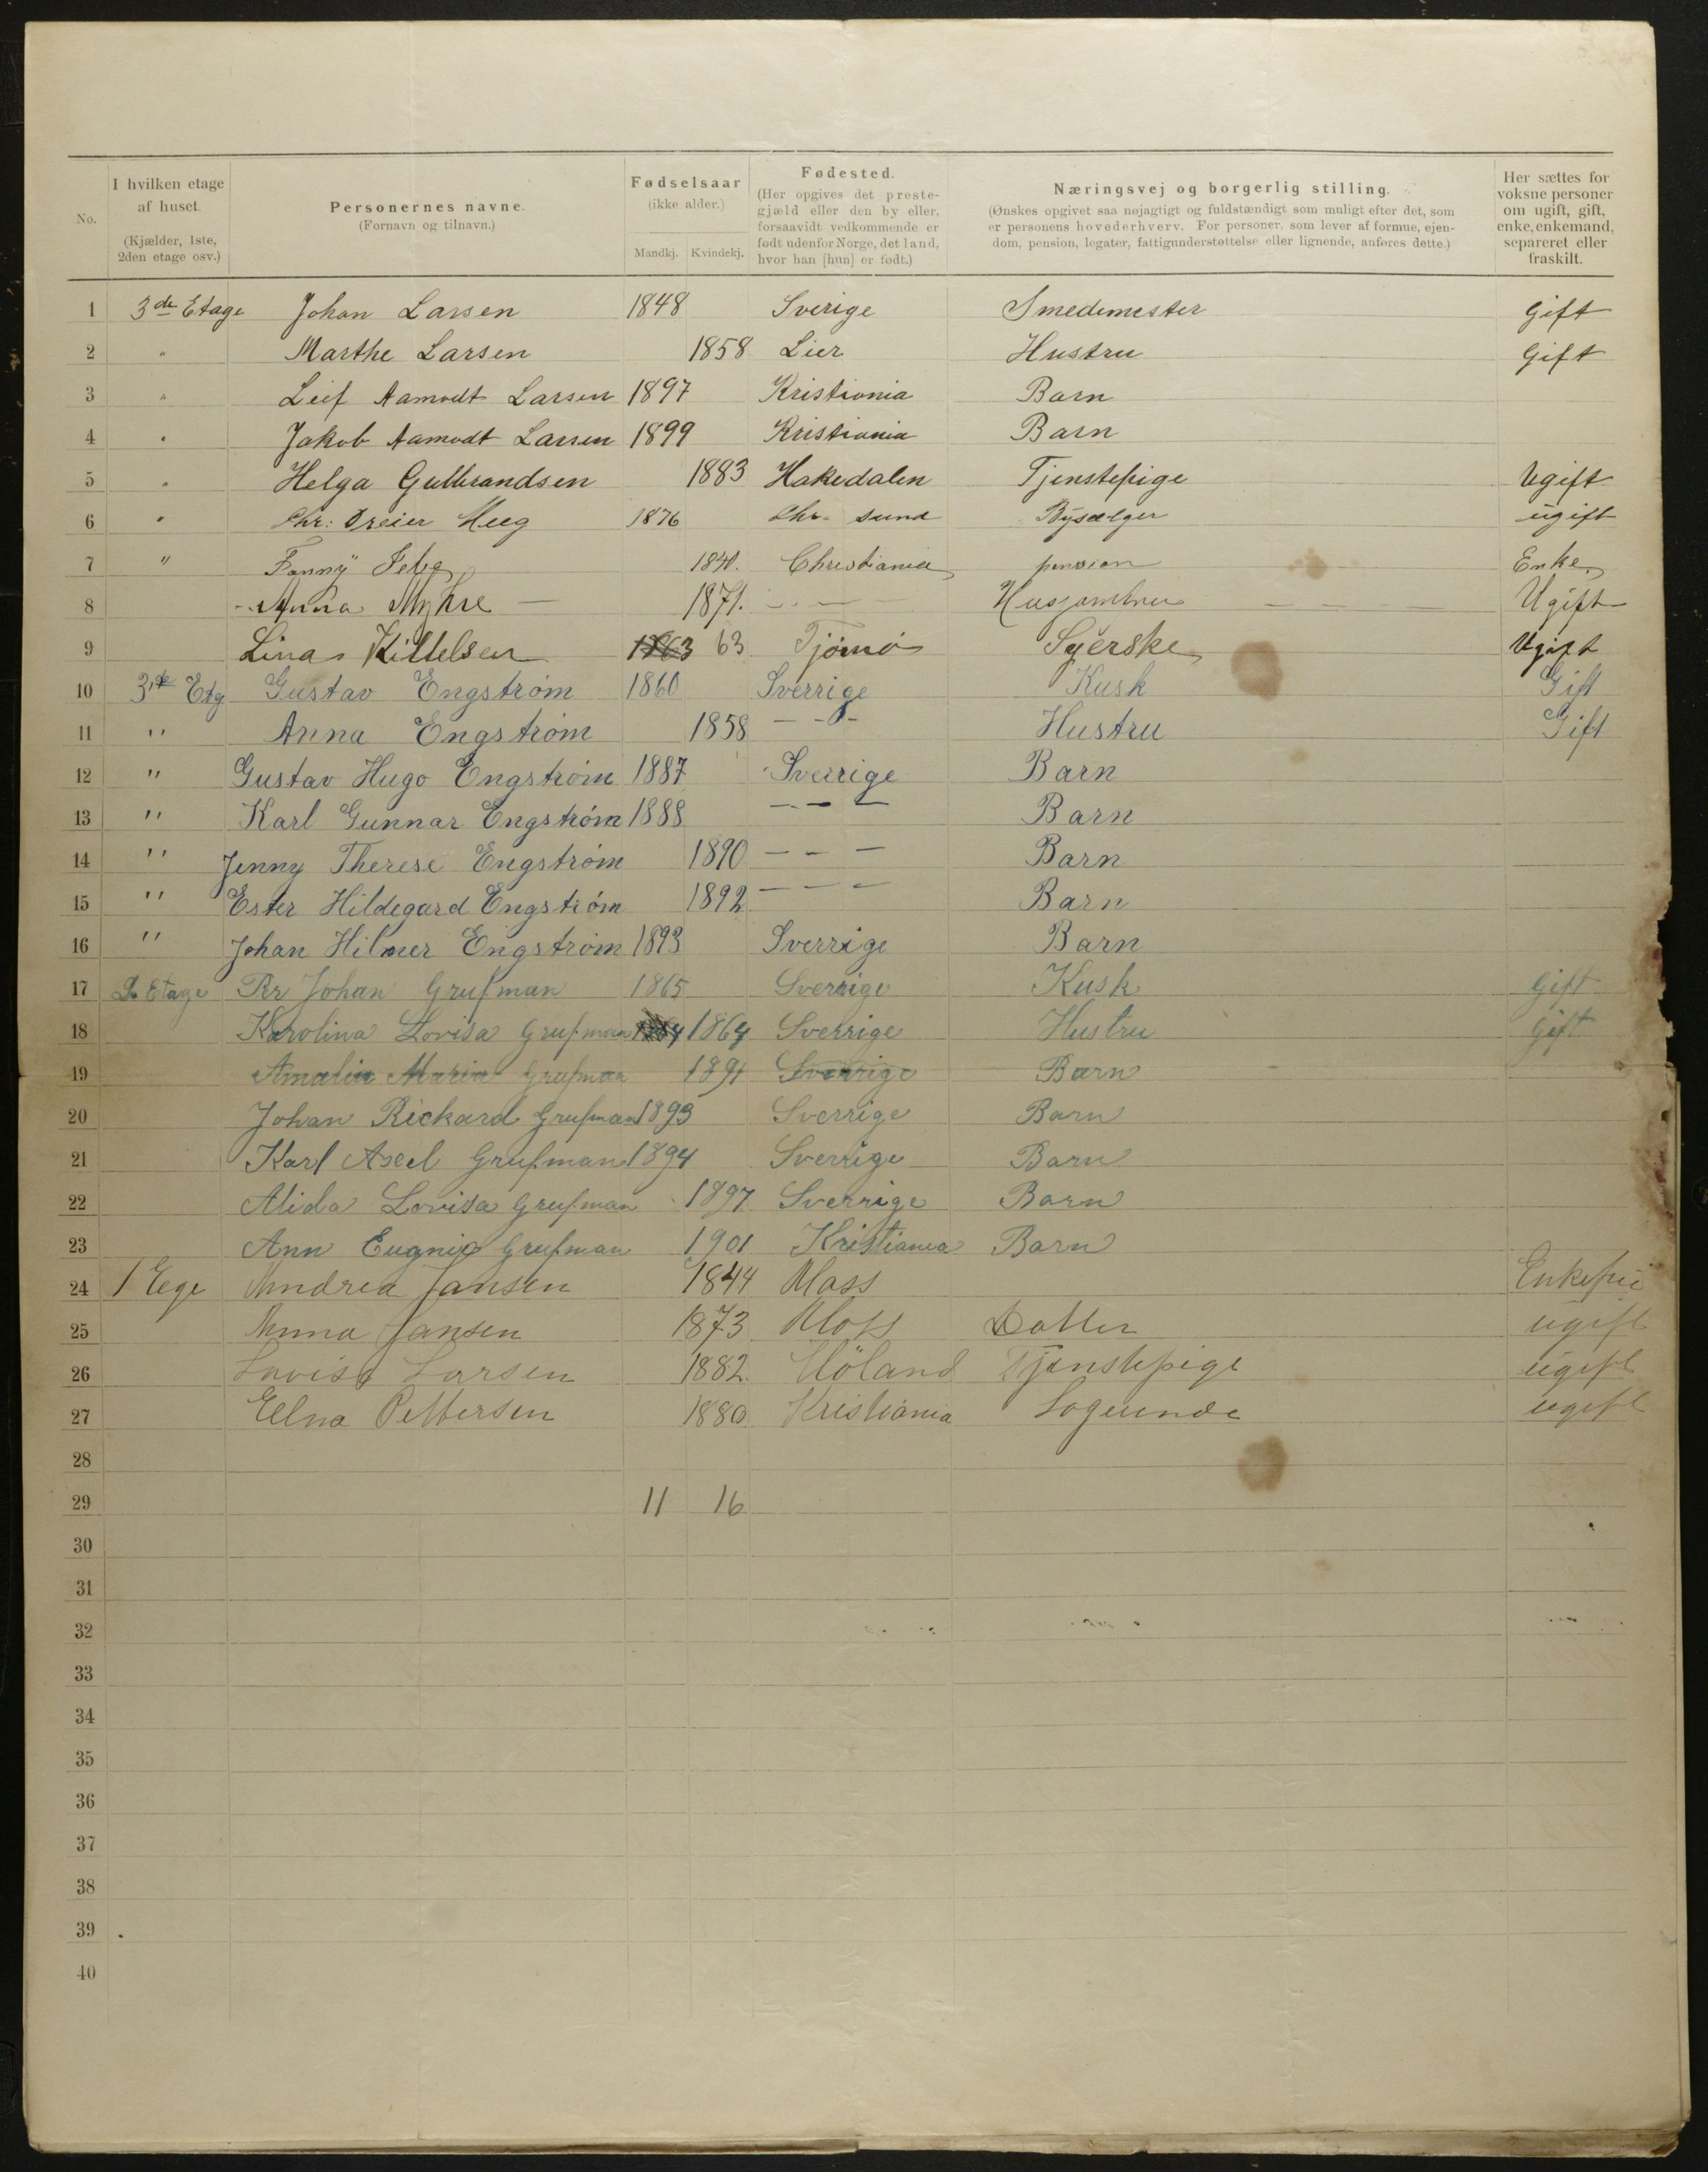 No. | I hvilken etage af huset. (Kjælder, 1ste, 2den etage osv.) | Personernes navne. (Fornavn og tilnavn.) | Fødselsaar (ikke alder.) Mandkj. Kvindekj. | Fødested. (Her opgives det prestegjæld eller den by eller, forsaavidt vedkommende er født udenfor Norge, det land, hvor han [hun] er født.) | Næringsvej og borgerlig stilling. (Ønskes opgivet saa nøjagtigt og fuldstændigt som muligt efter det, som er personens hovederhverv. For personer, som lever af formue, ejendom, pension, legater, fattigunderstøttelse eller lignende, anføres dette.) | Her sættes for voksne personer om ugift, gift, enke, enkemand, separeret eller fraskilt.
1 3de Etage Johan Larsen 1848 Sverige Smedemester Gift
2 " Marthe Larsen 1858 Lier Hustru Gift
3 " Leif Aamodt Larsen 1897 Kristiania Barn
4 " Jakob Aamodt Larsen 1899 Kristiania Barn
5 " Helga Gulbrandsen 1883 Hakedalen Tjenstepige Ugift
6 " Chr: Dreier 1876 Chr. sund Bysælger ugift
7 " Fanny 1841. Christiania pension Enke.
8 Anna Myhre — 1871. - — Husjomfru Ugift
9 Lina Kittelsen 1863 63 Tjømø Syerske Ugift
10 3de Etg Gustav Engstrøm 1860 Sverrige Kusk Gift
11 " Anna Engstrøm 1858 — - - Hustru Gift
12 " Gustav Hugo Engstrøm 1887 Sverrige Barn
13 " Karl Gunnar Engstrøm 1888 — — — Barn
14 " Jenny Therese Engstrøm 1890 — — — Barn
15 " Ester Hildegard Engstrøm 1892 — — — Barn
16 " Johan Hilmer Engstrøm 1893 Sverrige Barn
17 2 Etage Per Johan Grufman 1865 Sverrige Kusk Gift
18 Karolina Lovisa Grufman 1864 1864 Sverrige Hustru Gift
19 Amalia Maria Grufman 1891 Sverrige Barn
20 Johan Rickard Grufman 1893 Sverrige Barn
21 Karl Axel Grufman 1894 Sverrige Barn
22 Alida Lovisa Grufman 1897 Sverrige Barn
23 Ann Eugnie Grufman 1901 Kristiania Barn
24 1 Ege Andrea Jansen 1844 Moss
25 Anna Jansen 1873 Moss Datter ugift
26 Lovise Larsen 1882. Höland Tjenstepige ugift
27 Elna Pettersen 1880 Kristiania Logerende ugift
28
29 11 16
30
31
32
33
34
35
36
37
38
39
40